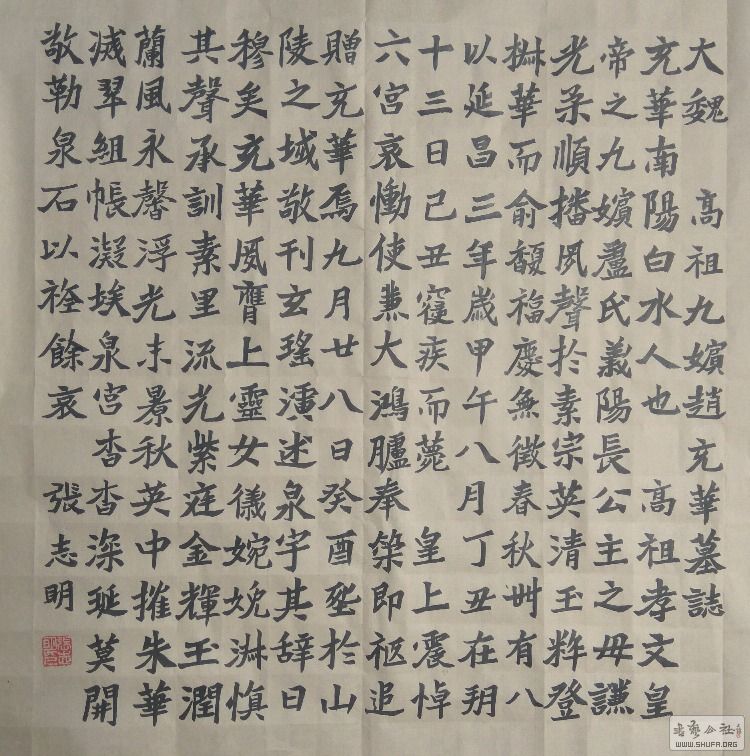 大魏　高祖九嬪趙充華墓誌
充華南陽白水人也　高祖孝文皇
帝之九嬪盧氏義陽長公主之母謙
光柔順播夙聲於素宗英清玉粹登
椒華而俞馥福慶無徵春秋卌有八
以延昌三年歲甲午八月丁丑在朔
十三日己丑寢疾而薨　皇上震悼
六宮哀慟使兼大鴻臚奉策即柩追
贈充華焉九月廿八日癸酉塟於山
陵之域敬刊玄瑤演述泉宇其辞曰
穆矣充華夙膺上靈女儀婉娩淋慎
其聲承訓素里流光紫庭金輝玉潤
蘭風永馨浮光未景秋英中摧朱華
滅翠組帳凝埃泉宮杳杳深埏莫開
敬勒泉石以旌餘哀　張志明
书艺公社
WWW.SHUFA.ORG